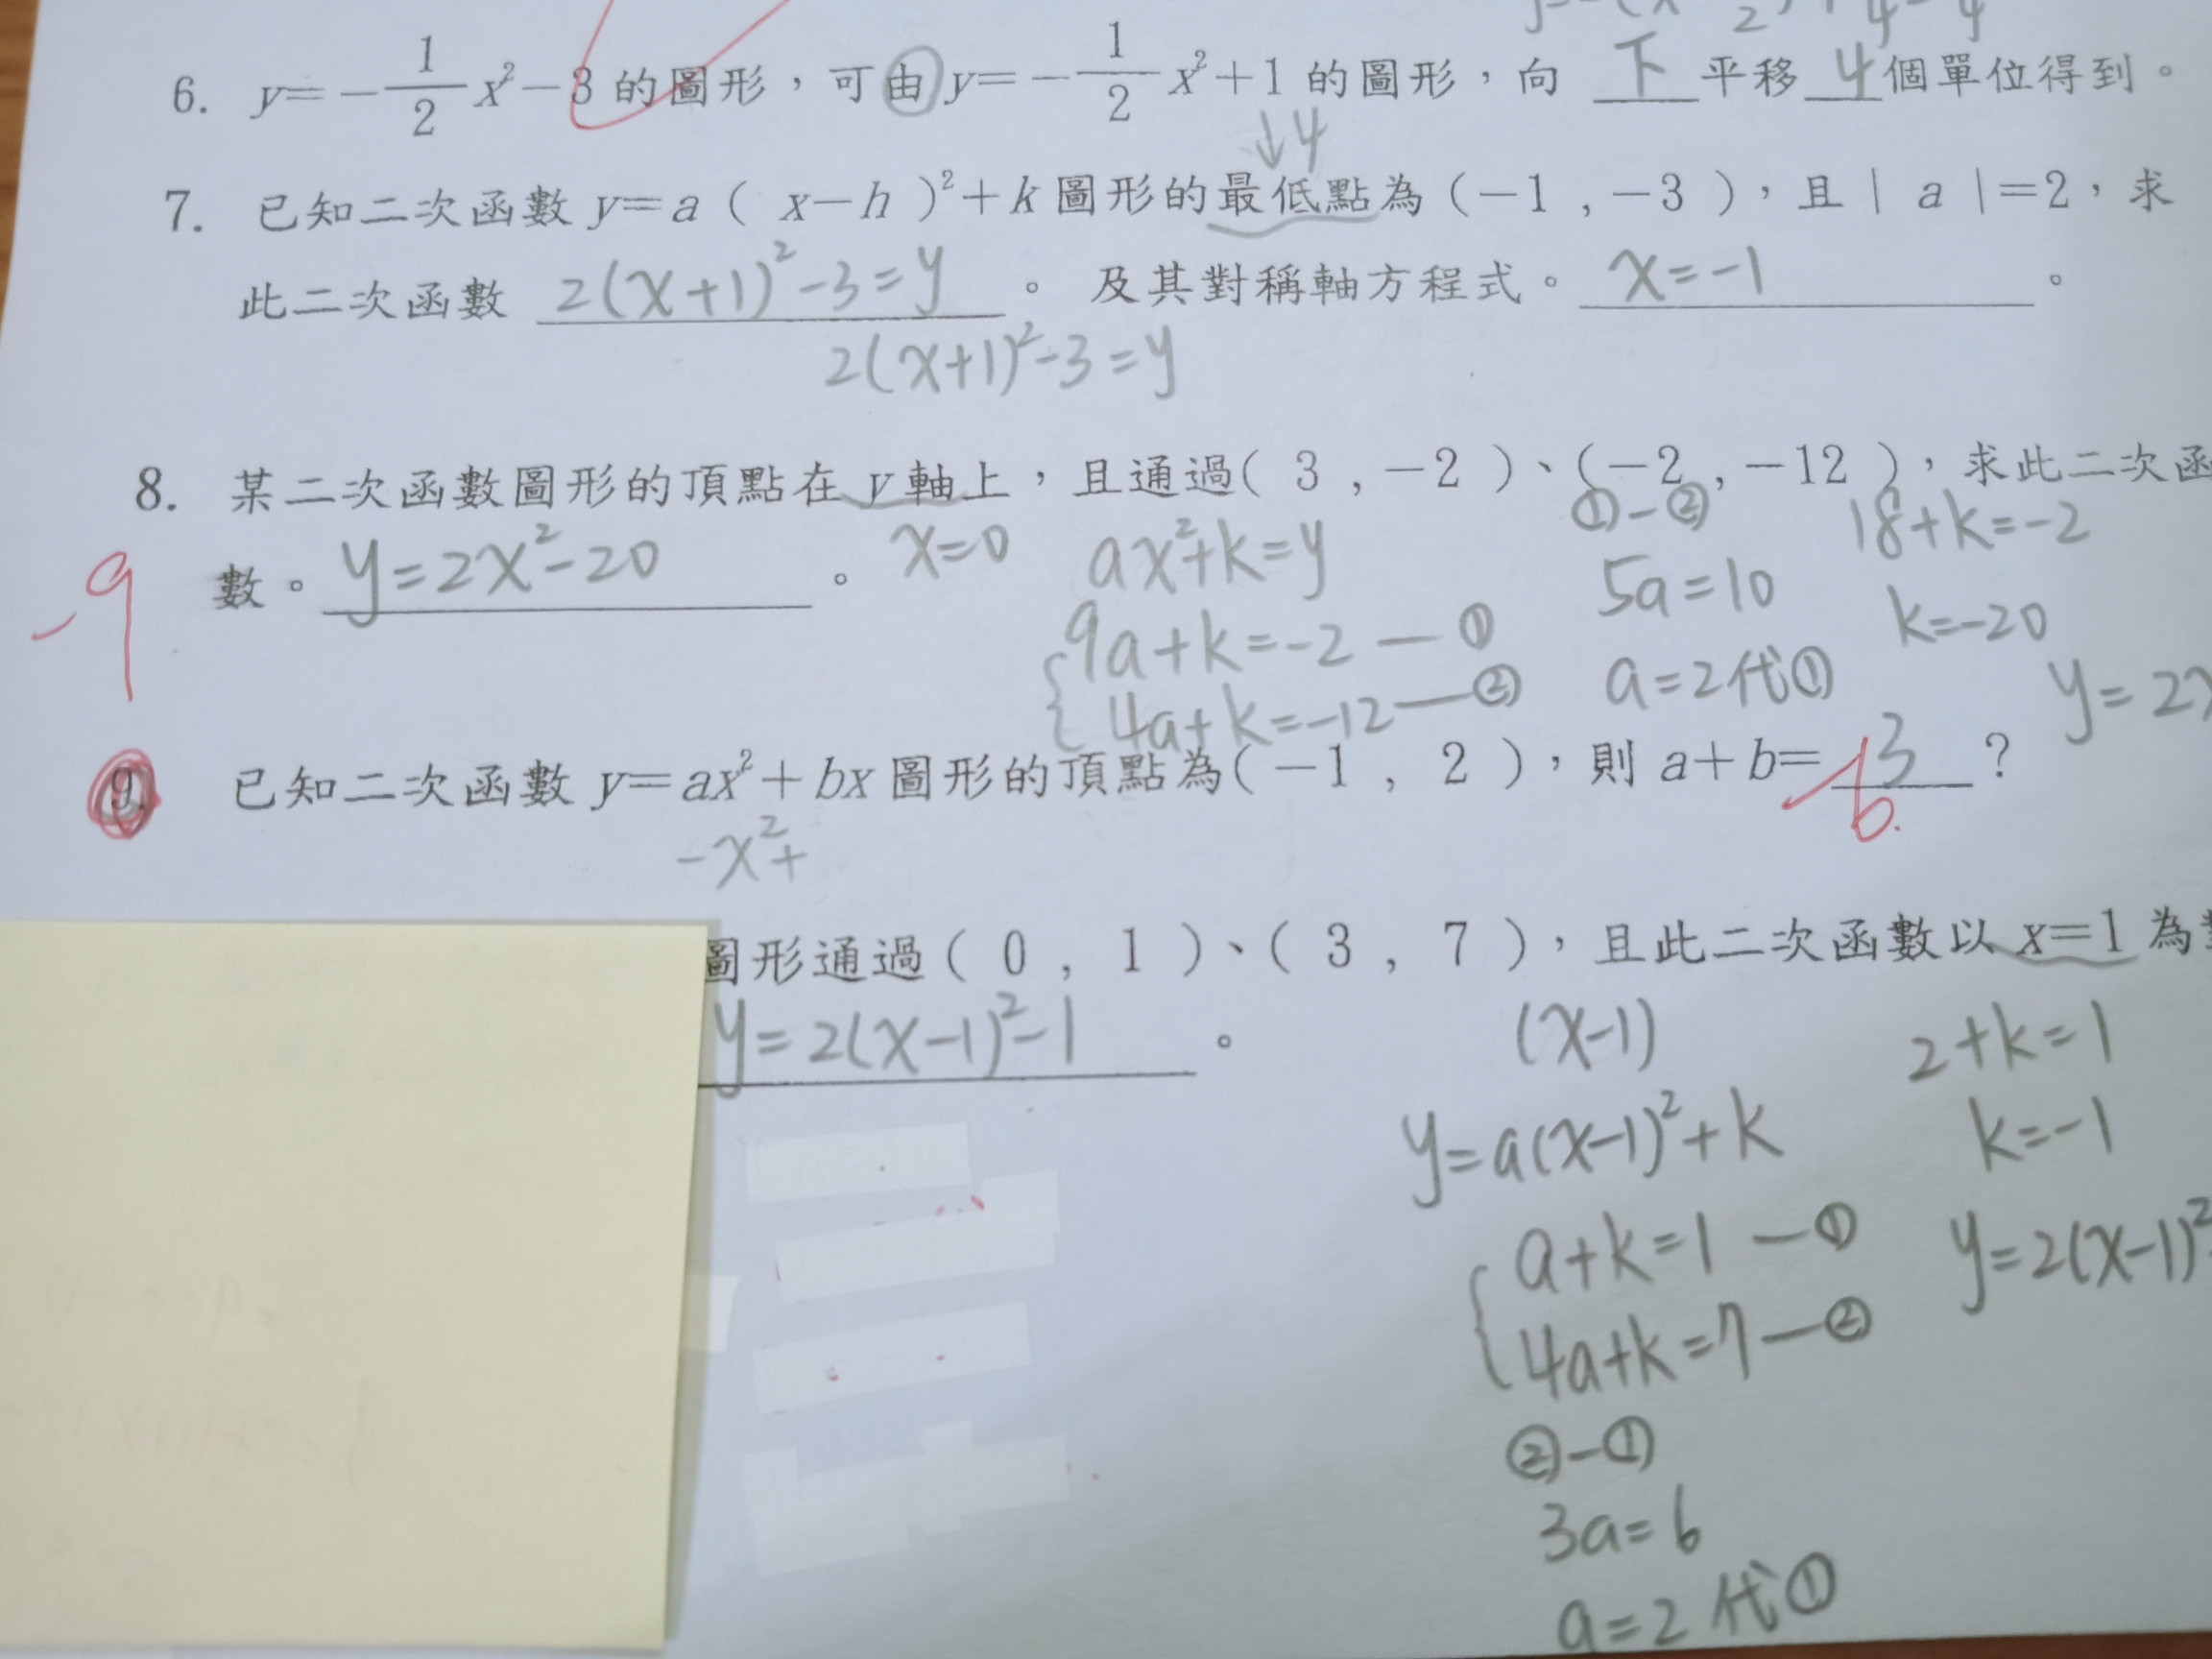 6. y=-1/2x²-3的圖形，可由y=-1/2x²+1的圖形，向 下 平移 4 個單位得到。
↓4
7. 已知二次函數y=a( x-h )²+k圖形的最低點為(-1 , -3 )，且| a |=2，求
此二次函數 2(x+1)²-3=y 。 及其對稱軸方程式。 x=-1 。
2(x+1)²-3=y
8. 某二次函數圖形的頂點在y軸上，且通過( 3 , -2 )、(-2 , -12 )，求此二次函
數。 y=2x²-20 。
x=0
ax²+k=y
9a+k=-2 — ①
4a+k=-12 — ②
①-②
5a=10
a=2代①
18+k=-2
k=-20
y=2x
-9
9. 已知二次函數y=ax²+bx圖形的頂點為(-1 , 2 )，則a+b= 3 ？
-6.
-x²+
圖形通過( 0 , 1 )、( 3 , 7 )，且此二次函數以x=1為
y=2(x-1)²-1 。
(x-1)
y=a(x-1)²+k
a+k=1 — ①
4a+k=7 — ②
②-①
3a=6
a=2代①
2+k=1
k=-1
y=2(x-1)²